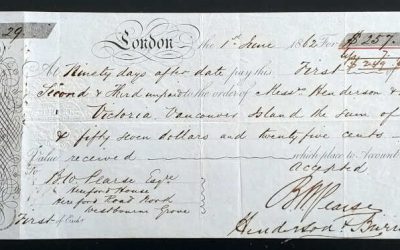 29
London the 1st June 1862 For $257
$249
At Ninety days after date pay this First
Second & Third unpaid to the order of Messrs Henderson &
Victoria, Vancouver Island the Sum of
& fifty seven dollars and twenty five cents
Value received which place to Account
To accepted
B.W. Pearse Esqre
House
Road North
Westbourne Grove
B W Pearse
First of
Henderson & Burn